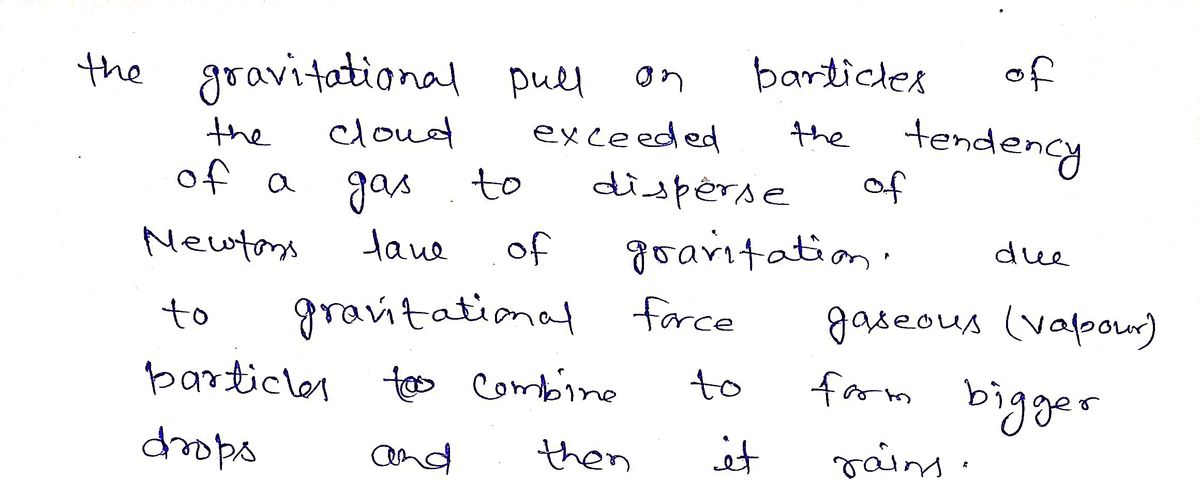 the gravitational pull on particles of
the cloud exceeded the tendency
of a gas to disperse of
Newtons lawe of gravitation.   due
to gravitational force gaseous (vapour)
particles to combine to form bigger
drops and then it rains.